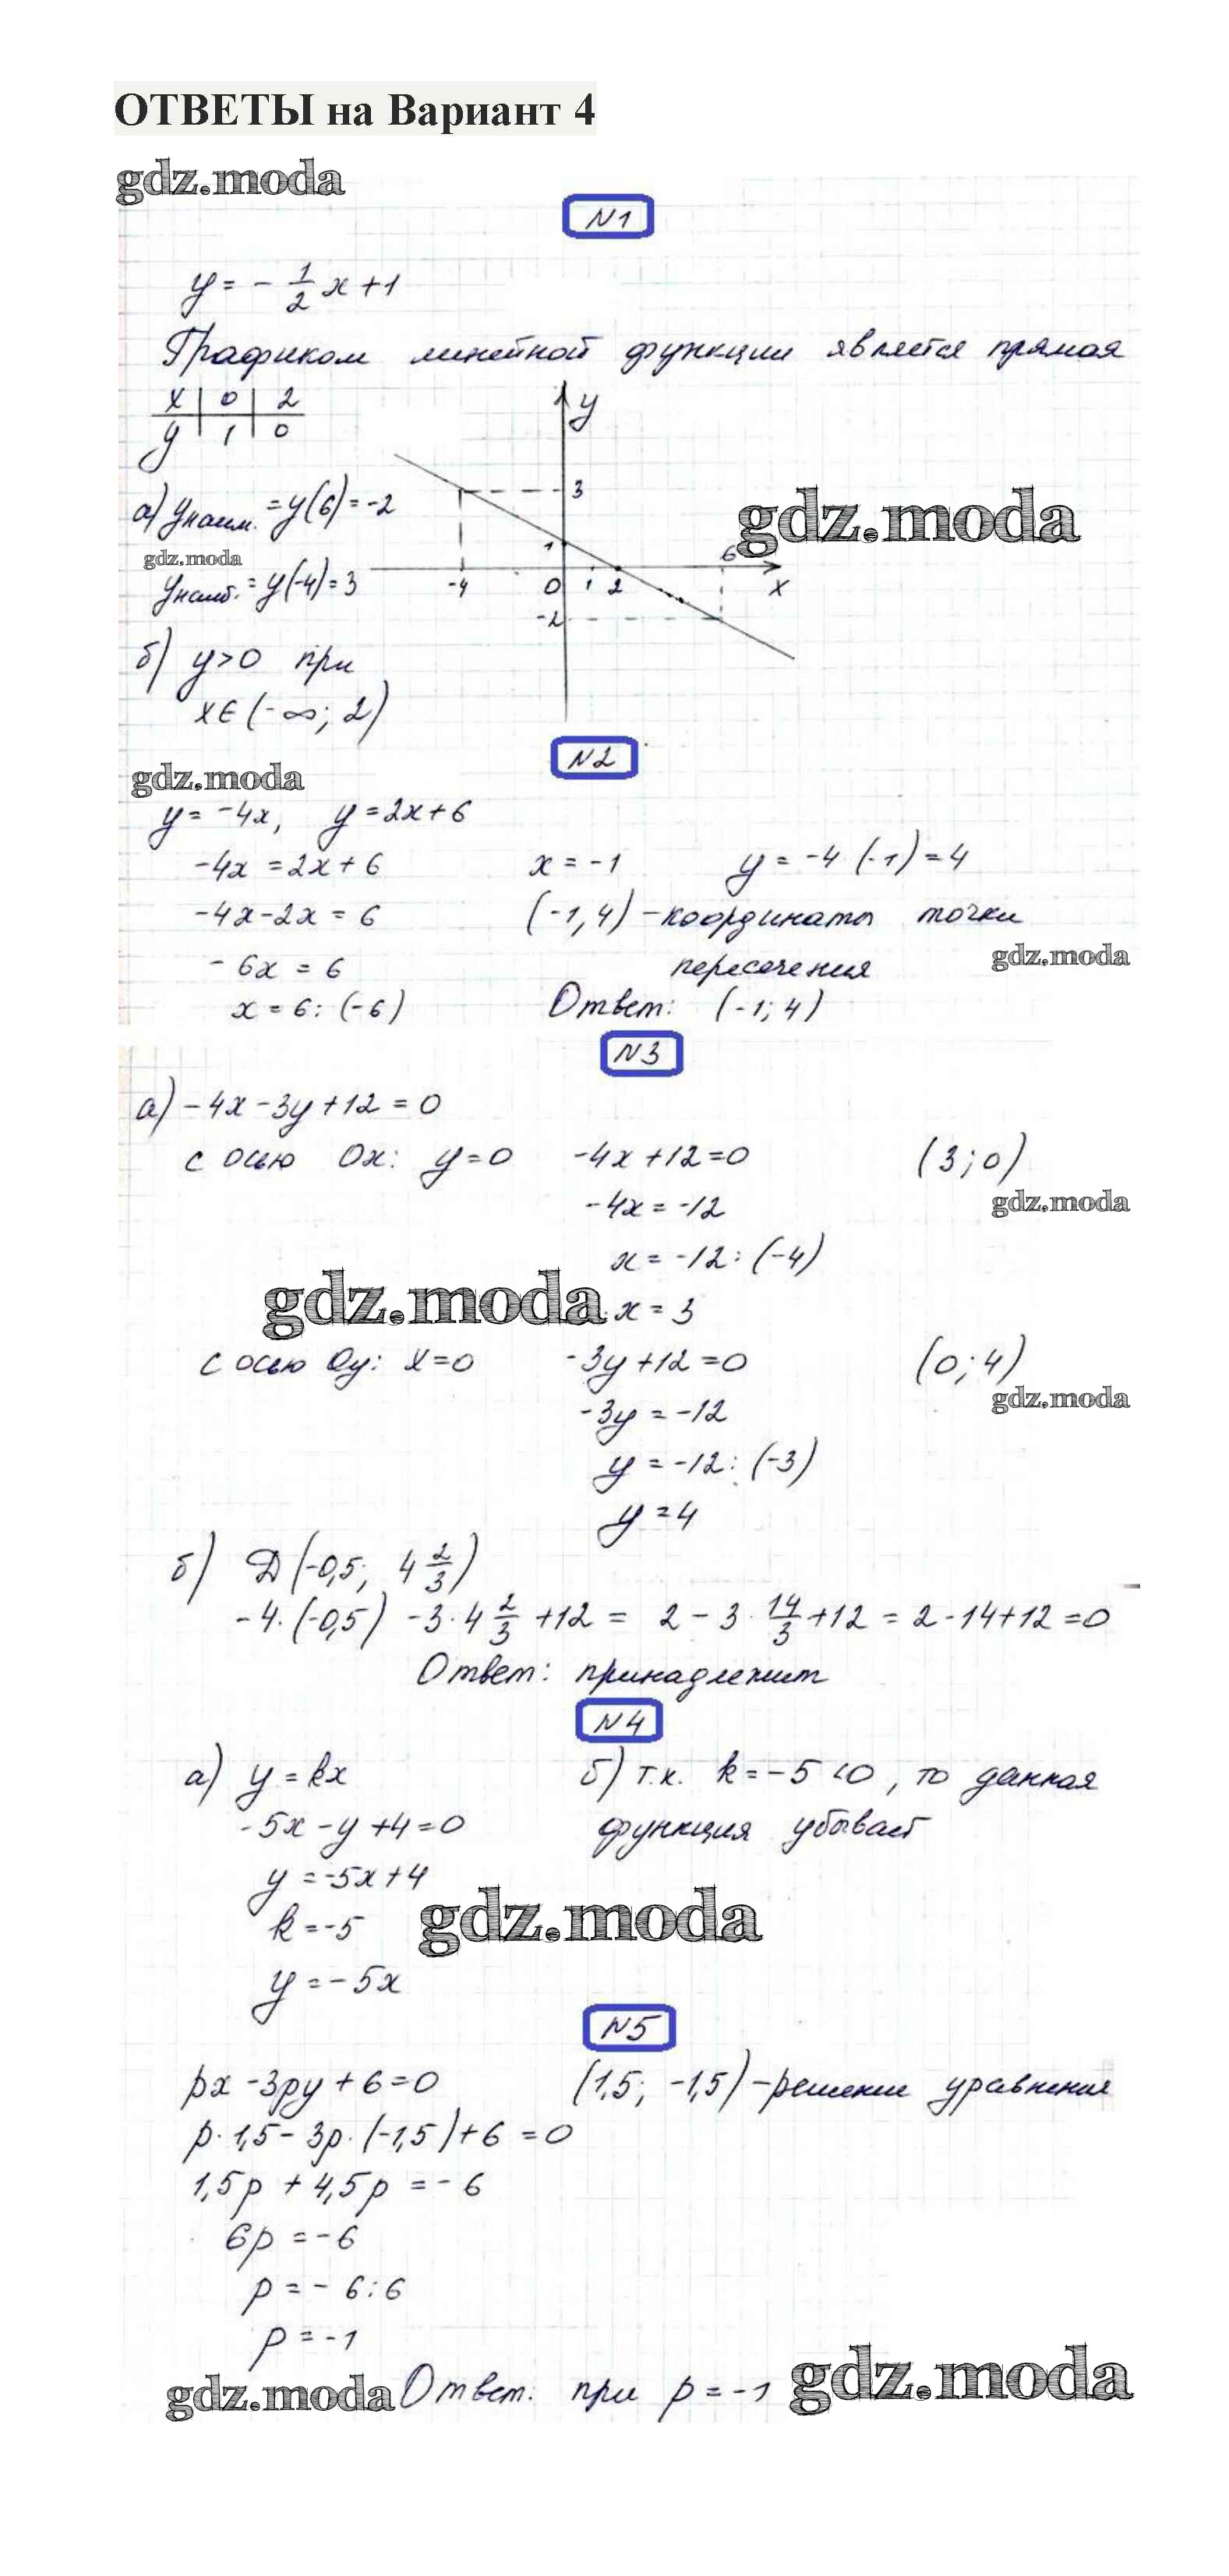 ОТВЕТЫ на Вариант 4
gdz.moda
N1
y = - 1/2 x + 1
Графиком линейной функции является прямая
x | 0 | 2
y | 1 | 0
y
3
1
-4 0 1 2 6 x
-2
а) yнаим. = y(6) = -2
gdz.moda
gdz.moda
yнаиб. = y(-4) = 3
б) y > 0 при
x ∈ (-∞; 2)
N2
gdz.moda
y = -4x, y = 2x + 6
-4x = 2x + 6 x = -1 y = -4 (-1) = 4
-4x - 2x = 6 (-1, 4) - координаты точки
пересечения
gdz.moda
- 6x = 6
x = 6 : (-6) Ответ: (-1; 4)
N3
а) -4x - 3y + 12 = 0
с осью Ox: y = 0 -4x + 12 = 0 (3; 0)
gdz.moda
-4x = -12
x = -12 : (-4)
gdz.moda
x = 3
с осью Oy: x = 0 -3y + 12 = 0 (0; 4)
gdz.moda
-3y = -12
y = -12 : (-3)
y = 4
б) D (-0,5; 4 2/3)
-4 · (-0,5) - 3 · 4 2/3 + 12 = 2 - 3 · 14/3 + 12 = 2 - 14 + 12 = 0
Ответ: принадлежит
N4
а) y = kx б) т.к. k = -5 < 0, то данная
-5x - y + 4 = 0 функция убывает
y = -5x + 4
k = -5
gdz.moda
y = -5x
N5
px - 3py + 6 = 0 (1,5; -1,5) - решение уравнения
p · 1,5 - 3p · (-1,5) + 6 = 0
1,5p + 4,5p = - 6
6p = -6
p = - 6 : 6
p = -1
gdz.moda Ответ: при p = -1 gdz.moda